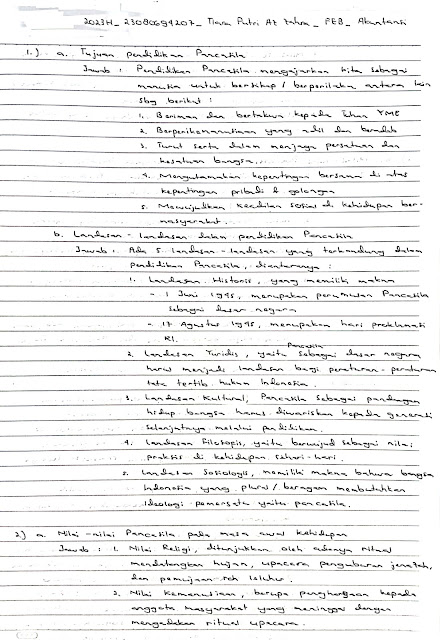 2023H_23080694207_Tiara Putri Az Zahra_PEB_Akuntansi
1.) a. Tujuan pendidikan Pancasila
Jawab : Pendidikan Pancasila mengajarkan kita sebagai
manusia untuk bersikap / berperilaku antara lain
sbg berikut :
1. Beriman dan bertakwa kepada Tuhan YME
2. Berperikemanusiaan yang adil dan beradab
3. Turut serta dalam menjaga persatuan dan
kesatuan bangsa.
4. Mengutamakan kepentingan bersama di atas
kepentingan pribadi & golongan
5. Mewujudkan keadilan sosial di kehidupan ber-
masyarakat.
b. Landasan - landasan dalam pendidikan Pancasila
Jawab : Ada 5 landasan - landasan yang terkandung dalam
pendidikan Pancasila, diantaranya :
1. Landasan Historis, yang memiliki makna
- 1 Juni 1945, merupakan perumusan Pancasila
sebagai dasar negara
- 17 Agustus 1945, merupakan hari proklamasi
RI.
2. Landasan Yuridis, yaitu Pancasila sebagai dasar negara
harus menjadi landasan bagi peraturan - peraturan
tata tertib hukum Indonesia.
3. Landasan Kultural, Pancasila sebagai pandangan
hidup bangsa harus diwariskan kepada generasi
selanjutnya melalui pendidikan.
4. Landasan Filosopis, yaitu berwujud sebagai nilai
praksis di kehidupan sehari-hari.
5. Landasan Sosiologis, memiliki makna bahwa bangsa
Indonesia yang plural / beragam membutuhkan
Ideologi pemersatu yaitu pancasila.
2.) a. Nilai - nilai Pancasila pada masa awal kehidupan
Jawab : 1. Nilai Religi, ditunjukkan oleh adanya ritual
mendatangkan hujan, upacara penguburan jenazah,
dan pemujaan roh leluhur.
2. Nilai Kemanusiaan, berupa penghargaan kepada
anggota masyarakat yang meninggal dengan
mengadakan ritual upacara.